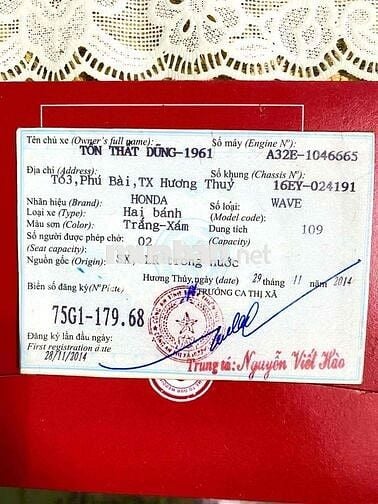 Tên chủ xe (Owner's full name): Số máy (Engine Nº):
TÔN THẤT DŨNG-1961 A32E-1046665
Địa chỉ (Address): Số khung (Chassis Nº):
Tổ3,Phú Bài,TX Hương Thuỷ 16EY-024191
Nhãn hiệu (Brand): HONDA Số loại: WAVE
Loại xe (Type): Hai bánh (Model code):
Màu sơn (Color): Trắng-Xám Dung tích 109
Số người được phép chở: 02 (Capacity)
(Seat capacity)
Nguồn gốc (Origin): trong nước
Hương Thủy, ngày (date) 29 11 2014
Biển số đăng ký (Nº Plate) TRƯỞNG CA THỊ XÃ
75G1-179.68
Đăng ký lần đầu ngày
First registration date
28/11/2014
Trung tá: Nguyễn Viết Hào